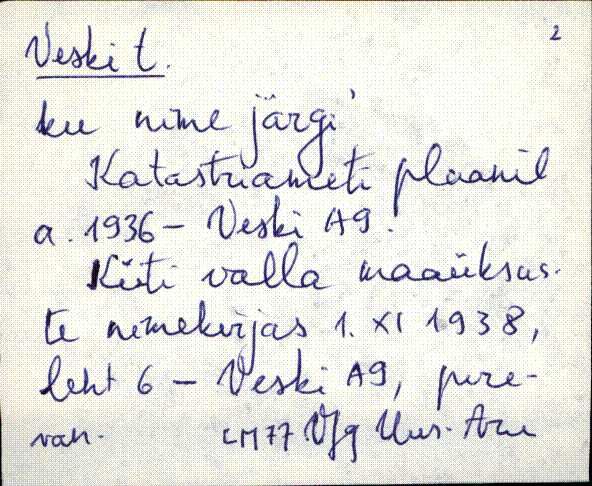 2
Veski t.
ku nime järgi'
Katastriameti plaanil
a. 1936 – Veski A9.
Küti valla maaüksus-
te nimekirjas 1. XI 1938,
leht 6 – Veski A9, pere-
van.